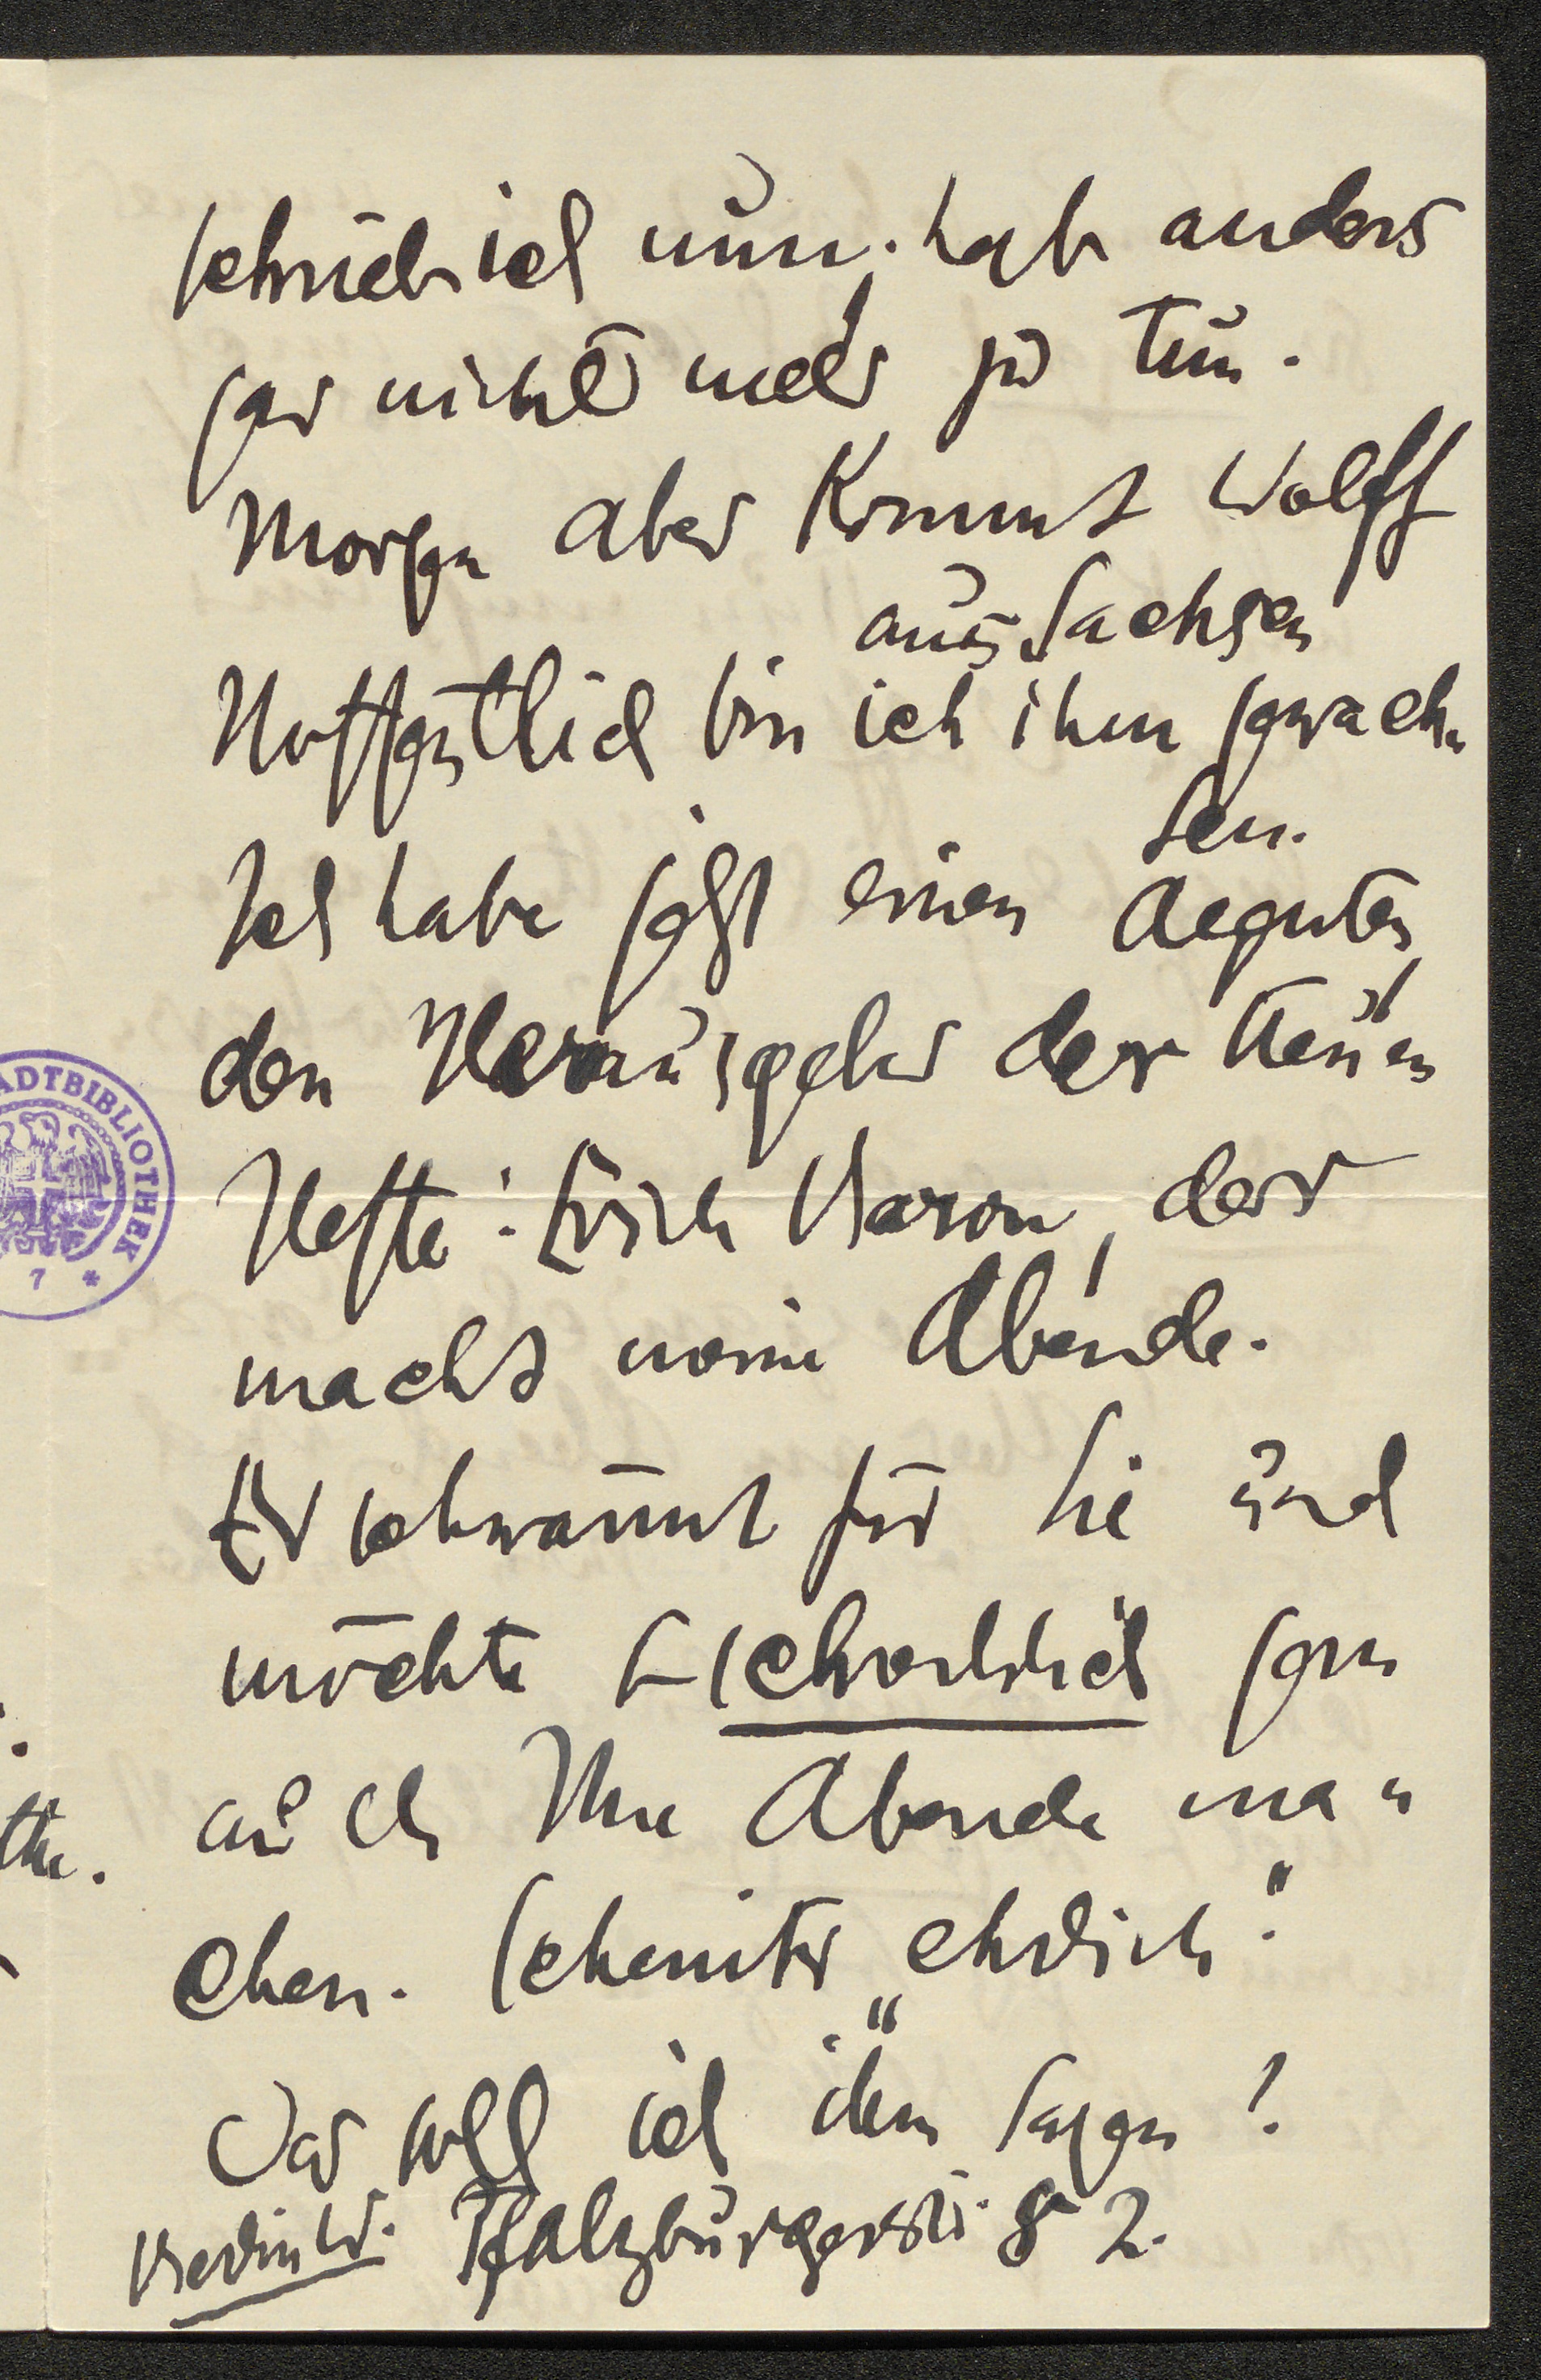 schrieb ich nun; hab anders
gar nichts mehr zu tun.
Morgen aber kommt Wolff
aus Sachsen
Hoffentlich bin ich ihm gewach-
sen.
Ich habe jetzt einen Aegenten
den Herausgeber der Neuen
Hefte: Erich Baron, der
macht meine Abende.
Er schwärmt für Sie und
möchte schrecklich gern
auch Ihre Abende ma-
chen. Scheint „ehrlich."
Was soll ich ihm sagen?
Berlin W. Pfalzburgerstr. 82.
ADTBIBLIOTHEK
7 *
the.